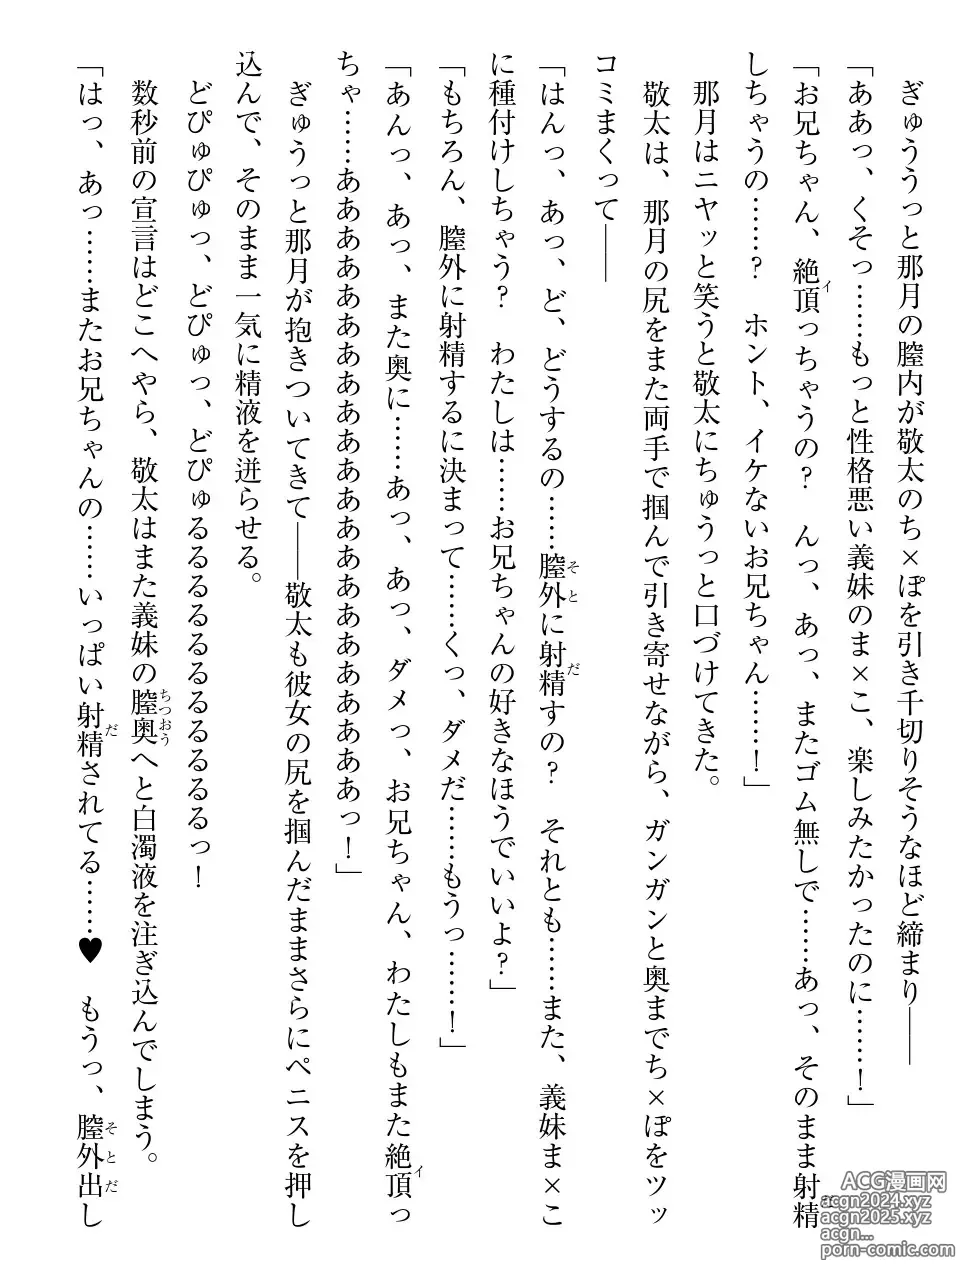 ぎゅううっと那月の膣内が敬太のち×ぽを引き千切りそうなほど締まり――
「ああっ、くそっ……もっと性格悪い義妹のま×こ、楽しみたかったのに……！」
「お兄ちゃん、絶頂っちゃうの？　んっ、あっ、またゴム無しで……あっ、そのまま射精
しちゃうの……？　ホント、イケないお兄ちゃん……！」
那月はニヤッと笑うと敬太にちゅうっと口づけてきた。
敬太は、那月の尻をまた両手で掴んで引き寄せながら、ガンガンと奥までち×ぽをツッ
コミまくって――
「はんっ、あっ、ど、どうするの……膣外に射精すの？　それとも……また、義妹ま×こ
に種付けしちゃう？　わたしは……お兄ちゃんの好きなほうでいいよ？」
「もちろん、膣外に射精するに決まって……くっ、ダメだ……もうっ……！」
「あんっ、あっ、また奥に……あっ、あっ、ダメっ、お兄ちゃん、わたしもまた絶頂っ
ちゃ……ああああああああああああああああああああああっ！」
ぎゅうっと那月が抱きついてきて――敬太も彼女の尻を掴んだままさらにペニスを押し
込んで、そのまま一気に精液を迸らせる。
どぴゅぴゅっ、どぴゅっ、どぴゅるるるるるるるるるるるっ！
数秒前の宣言はどこへやら、敬太はまた義妹の膣奥へと白濁液を注ぎ込んでしまう。
「はっ、あっ……またお兄ちゃんの……いっぱい射精されてる……♥　もうっ、膣外出し
ACG漫画网
acgn2024.xyz
acgn2025.xyz
acgn...
porn-comic.com